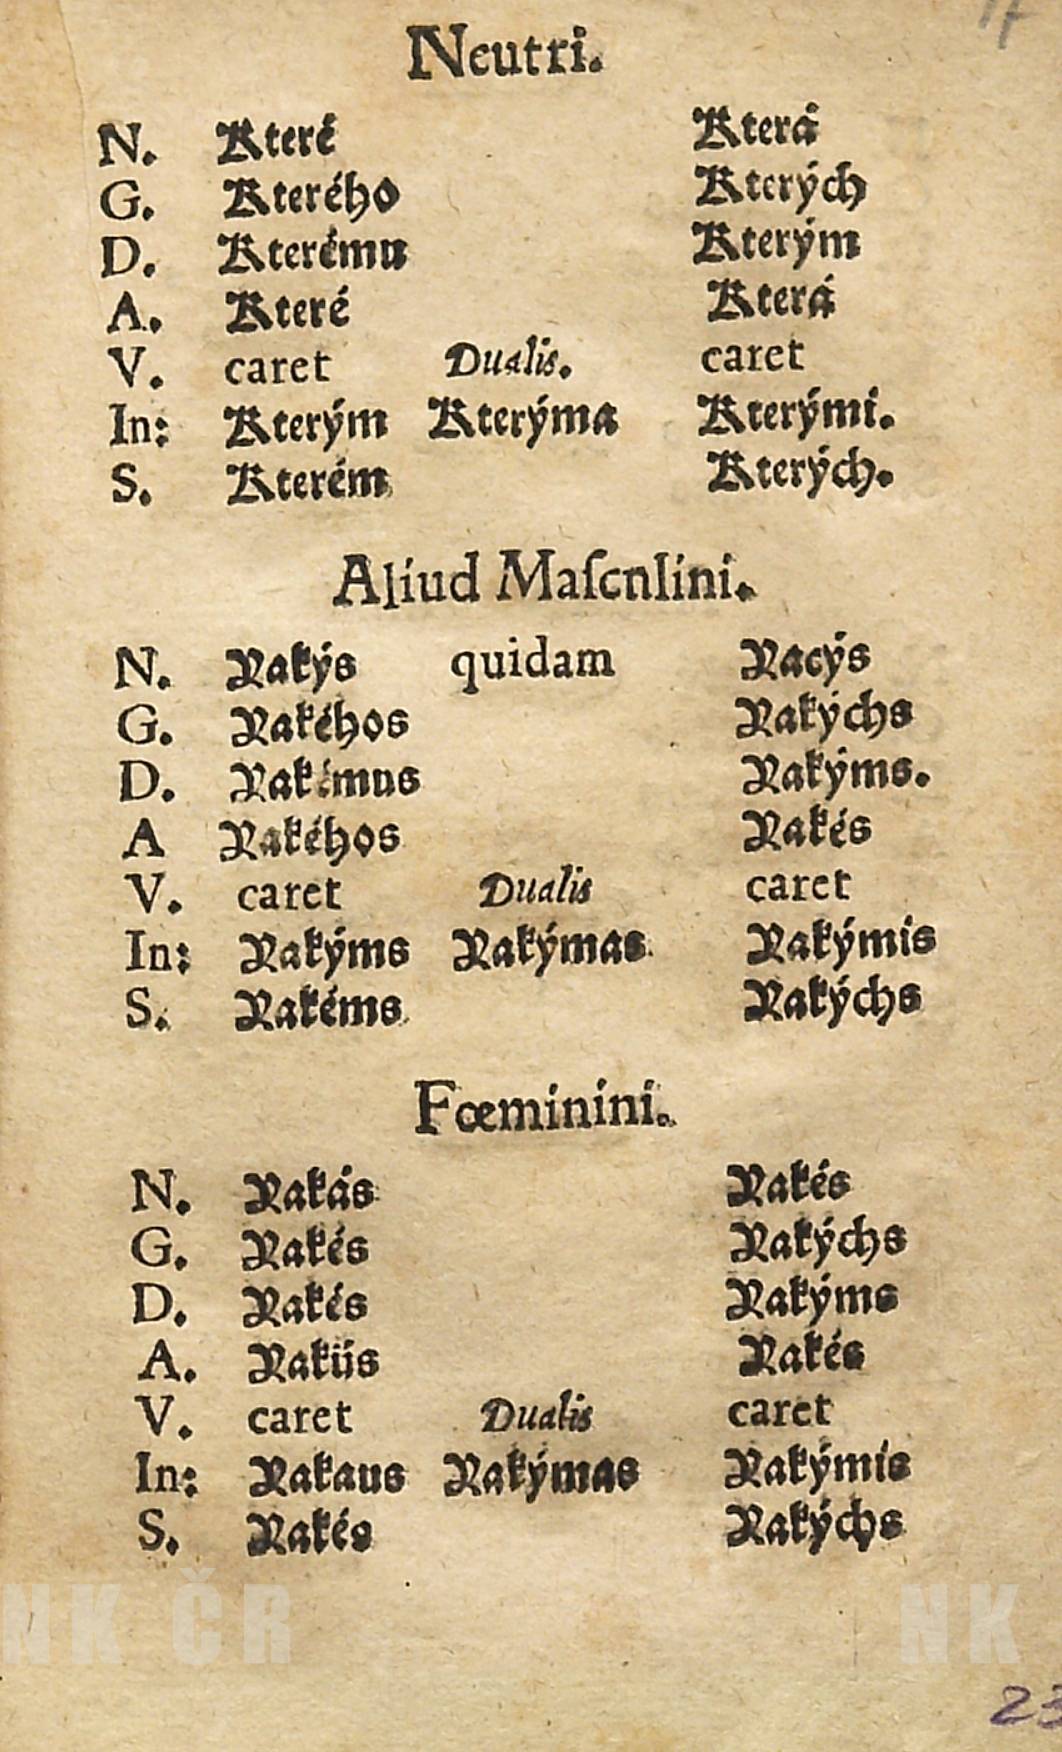 17
Neutri.
N. Které Která
G. Kterého Kterých
D. Kterému Kterým
A. Které Která
V. caret Dualis. caret
In: Kterým Kterýma Kterými.
S. Kterém Kterých.
Aliud Maſcnlini.
N. Yakýs quidam Yacýs
G. Yakéhos Yakýchs
D. Yakémus Yakýms.
A Yakéhos Yakés
V. caret Dualis caret
In: Yakýms Yakýmas Yakýmis
S. Yakéms Yakýchs
Fœminini.
N. Yakás Yakés
G. Yakés Yakýchs
D. Yakés Yakýms
A. Yakiis Yakés
V. caret Dualis caret
In: Yakaus Yakýmas Yakýmis
S. Yakés Yakýchs
NK ČR NK
23